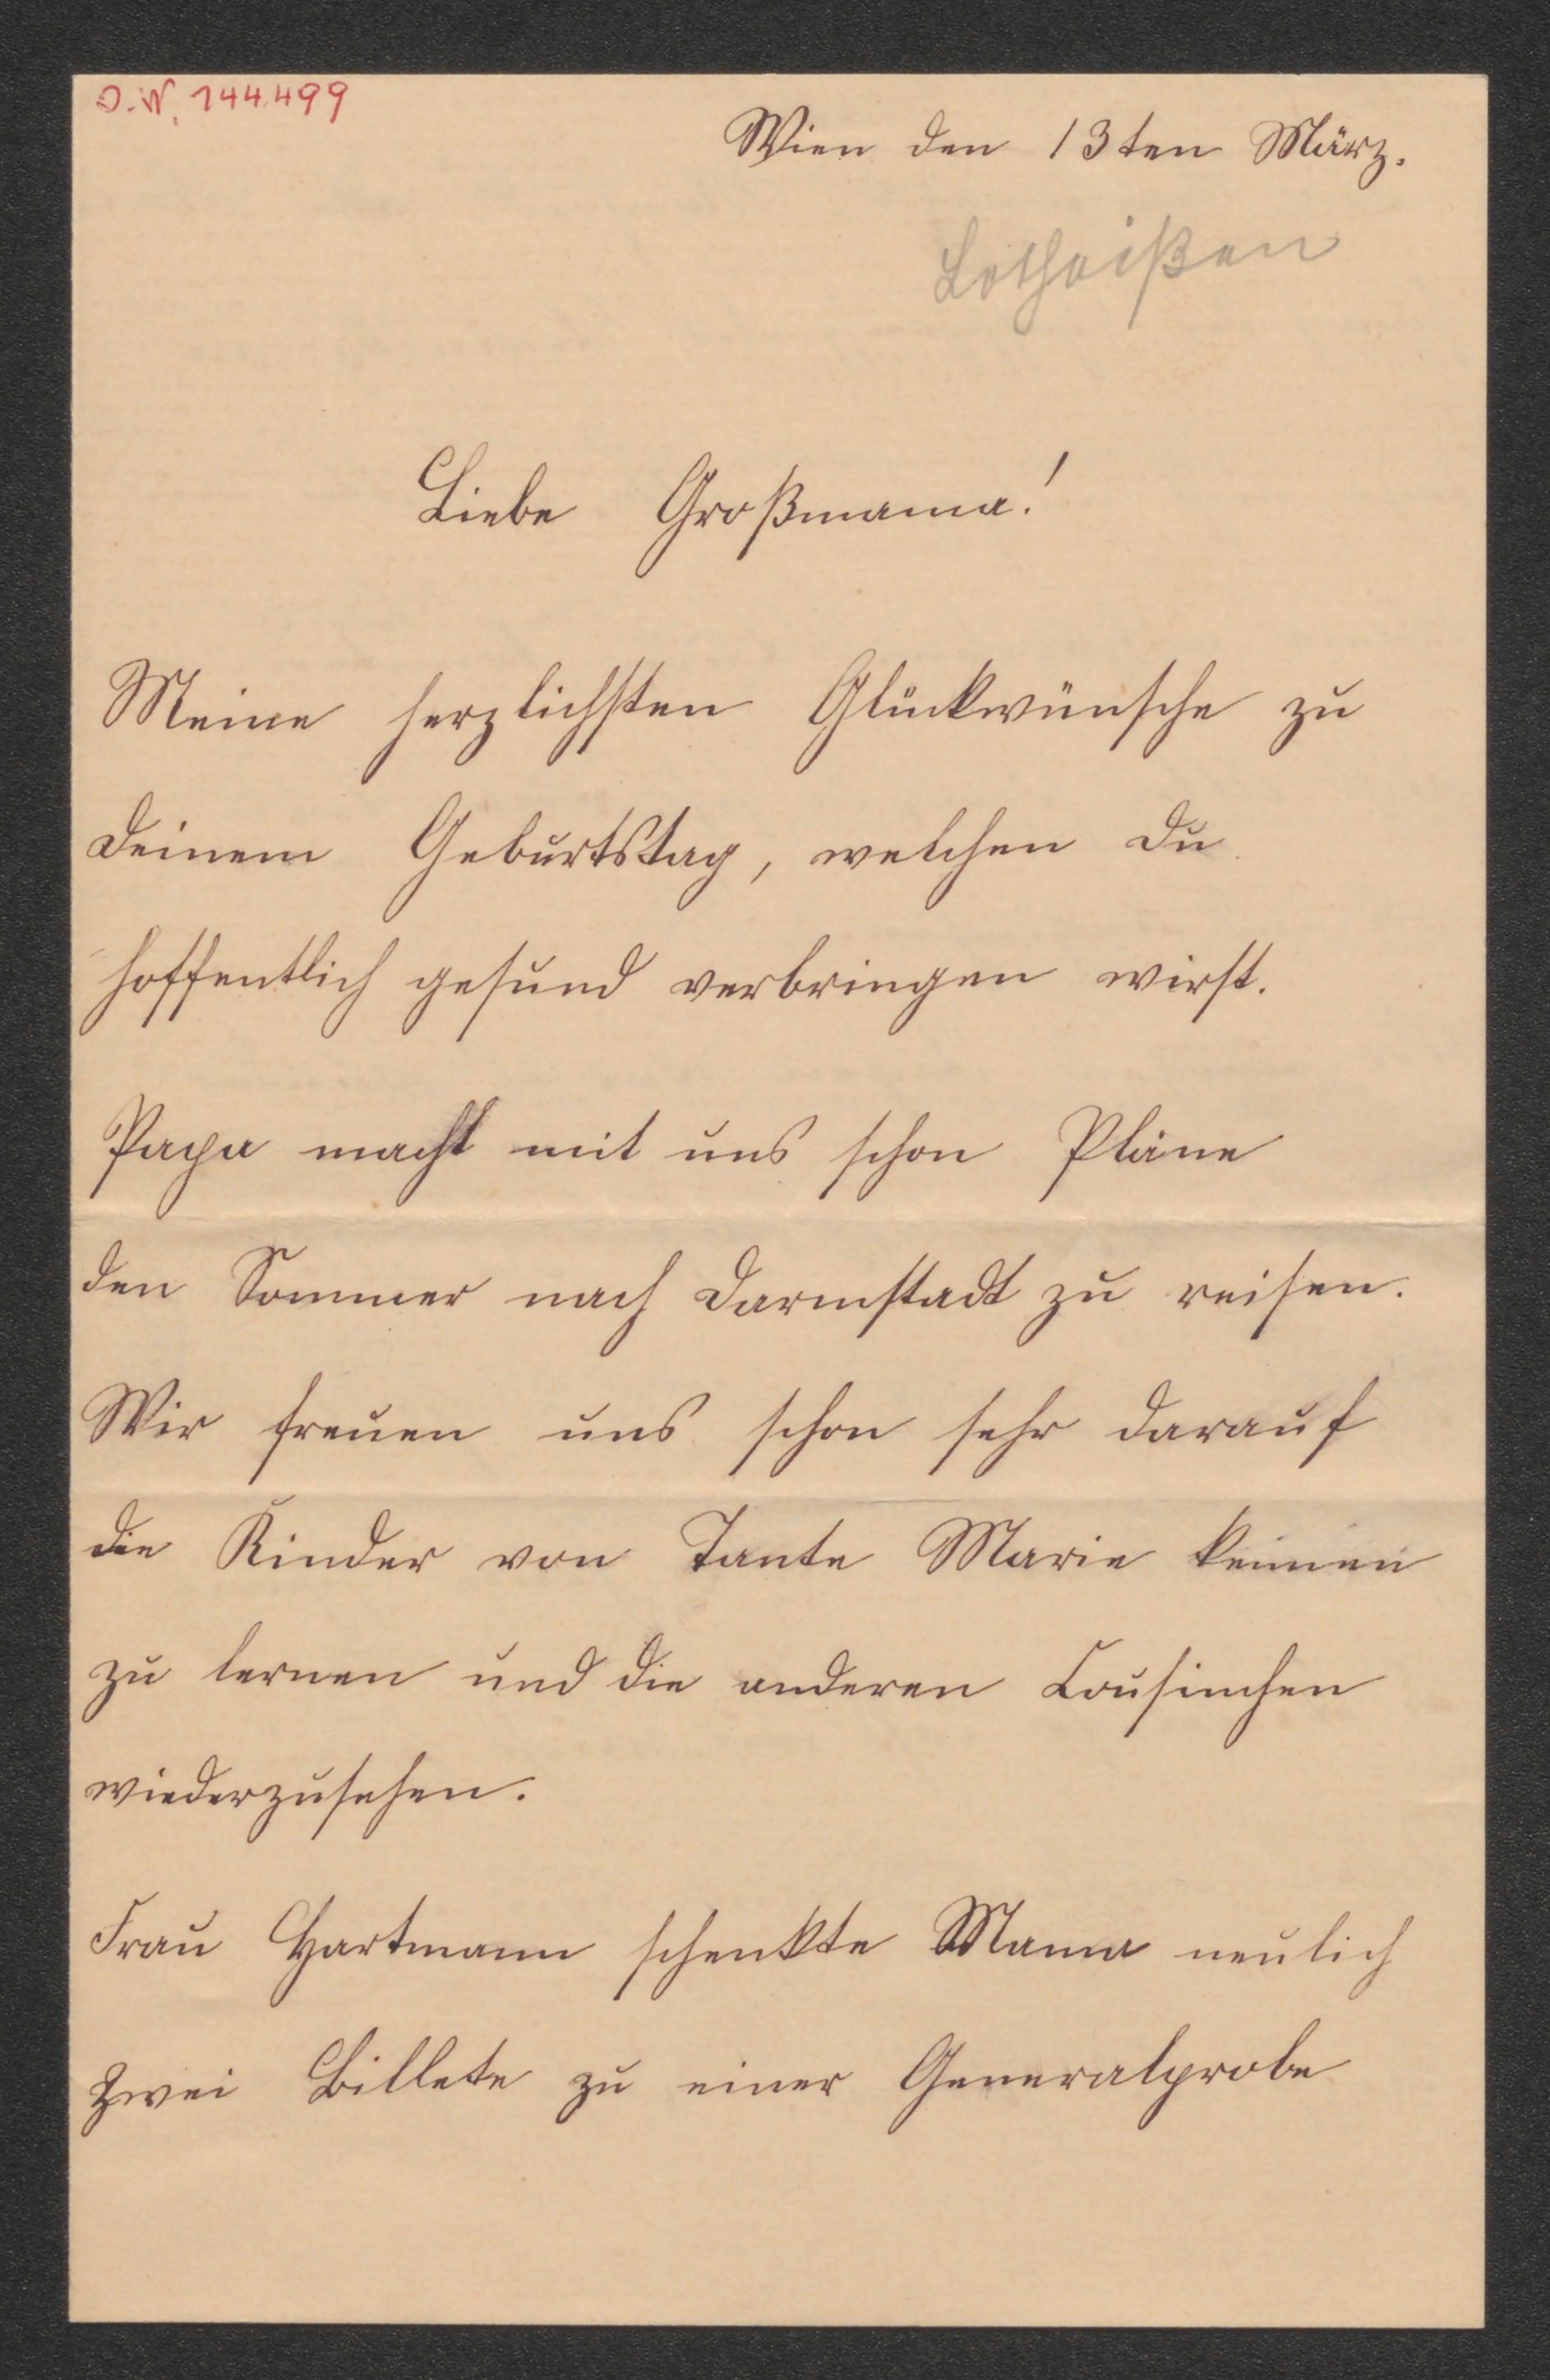 J.N. 144.499
Wien den 13ten März.
Lotheißen
Liebe Großmama!
Meine herzlichsten Glückwünsche zu
Deinem Geburtstag, welchen Du
hoffentlich gesund verbringen wirst.
Papa macht mit uns schon Pläne
den Sommer nach Darmstadt zu reisen.
Wir freuen uns schon sehr darauf
die Kinder von Tante Marie kennen
zu lernen und die anderen Cousinchen
wiederzusehen.
Frau Hartmann schenkte Mama neulich
zwei Billete zu einer Generalprobe